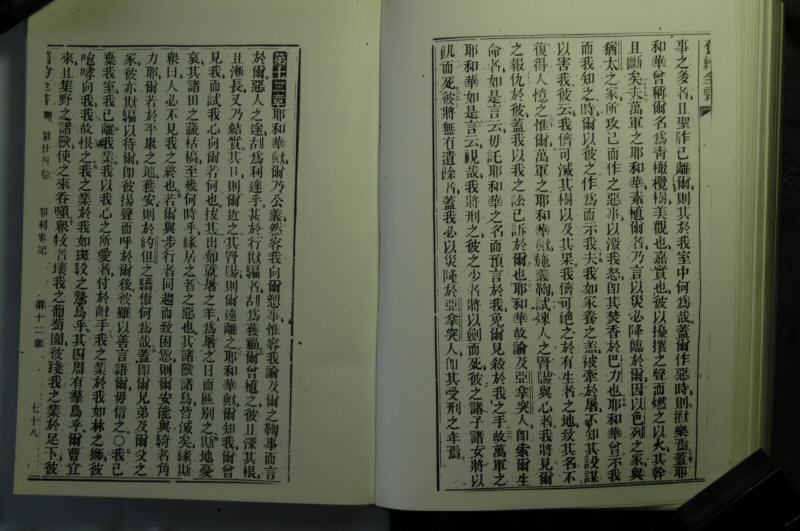 舊約全書
事之多者、且聖作己離爾、則其於我室中何爲哉、蓋爾作惡時、則歡樂焉、蓋耶
和華曾稱爾名爲靑橄欖樹、美觀也、嘉實也、彼以擾攘之聲而燃之以火、其幹
且斷矣、夫萬軍之耶和華素植爾者、乃言以災必降臨於爾、因以色列之家與
猶太之家所攻己而作之惡事、以激我怒、卽其焚香於巴力也、耶和華曾示我
而我知之、時爾以彼之作爲而示我、夫我如家養之羔、被牽於屠、不知其設謀
以害我、彼云、我儕可滅其樹以及其果、我儕可絕之於有生者之地、致其名不
復得人憶之、惟爾萬軍之耶和華歟、施義鞫、試煉人之腎腸與心者、我將見爾
之報仇於彼、蓋我以我之訟己訴於爾也、耶和華故論及亞拿突人、卽索爾生
命者、如是言云、毋託耶和華之名而預言於我、免爾見殺於我之手、故萬軍之
耶和華如是言云、視哉、我將刑之、彼之少者將以劍而死、彼之諸子諸女將以
飢而死、彼將無有遺餘者、蓋我必以災降於亞拿突人、卽其受刑之年焉、
第十二章 耶和華歟、爾乃公義、然容我向爾愬事、惟容我論及爾之鞫事而言
於爾、惡人之途胡爲利達乎、甚於行欺騙者、胡爲獲福、爾曾植之、彼且深其根、
且漸長、又乃結實、其口則爾近之、其腎腸則爾遠離之、耶和華歟、知我、爾曾
見我而試我心向爾者何也、拔其出如就屠之羊、爲屠之日而區別之、斯地憂
哀、其諸田之蔬枯槁、至幾何時乎、緣居之者之惡也、其諸獸諸鳥皆滅矣、緣斯
衆曰、人必不見我之終也、若爾與步行者同趨而致困憊、則爾安能與騎者角
力耶、爾若於平康之地獲安、則於約但之驕傲何爲哉、蓋卽爾兄弟及爾父之
家、彼亦欺騙以待爾、卽彼揚聲而呼於爾後、彼雖以善言語爾、毋信之、〇我已
棄我室、我已離我業、我以我心之所愛者、付於敵手、我之業於我如林之獅、彼
咆哮向我、我故恨之、我之業於我如斑駁之鷙鳥乎、其四周有羣鳥乎、爾曹宜
來、且集野之諸獸、使之來吞噬、衆牧者壞我之葡萄園、彼踐我之業於足下、彼
舊約全書 第廿四卷 耶利米記 第十二章 七十八